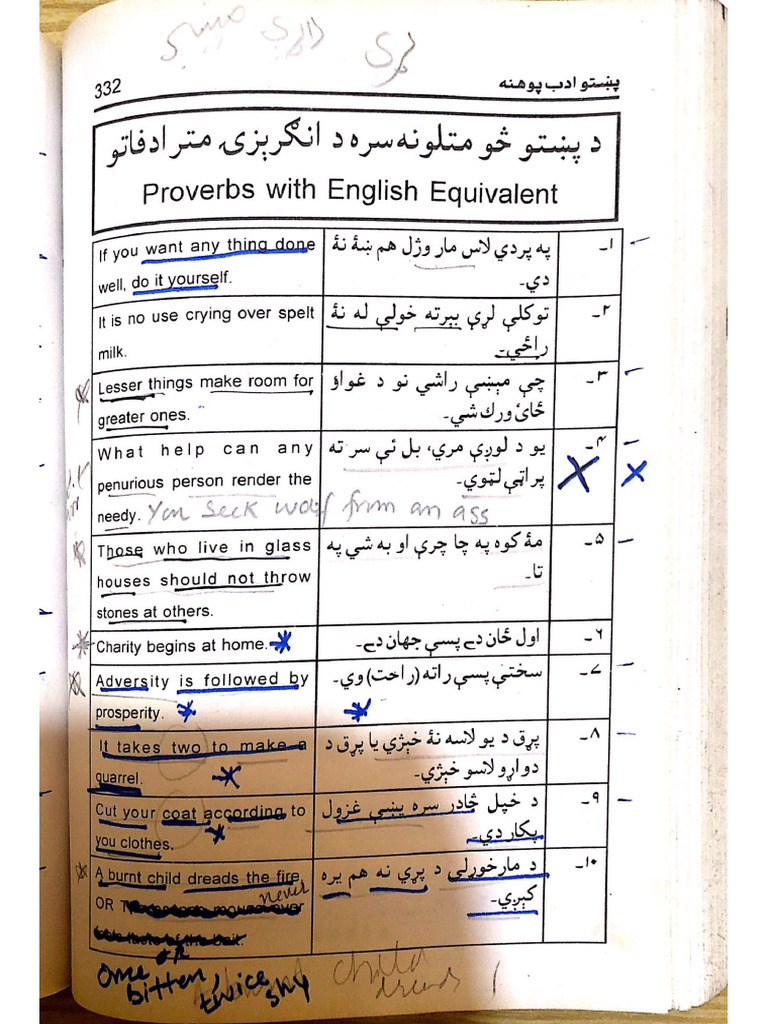 332
پښتو ادب پوهنه
د پښتو څو متلونه سره د انګرېزۍ مترادفاتو
Proverbs with English Equivalent
۱۔
په پردي لاس مار وژل هم ښۀ نۀ
دي۔
If you want any thing done
well, do it yourself.
۲۔
توکلې لړې بېرته خولې له نۀ
راځي۔
It is no use crying over spelt
milk.
۳۔
چې مېښې راشي نو د غواؤ
ځائ ورك شي۔
Lesser things make room for
greater ones.
۴۔
يو د لوږې مري، بل ئې سر ته
پراټې لټوي۔
What help can any
penurious person render the
needy.
You seek wolf from an ass
۵۔
مۀ کوه په چا چرې او به شي په
تا۔
Those who live in glass
houses should not throw
stones at others.
۶۔
اول ځان دے پسې جهان دے۔
Charity begins at home.
۷۔
سختې پسې راته (راحت) وي۔
Adversity is followed by
prosperity.
۸۔
پړق د يو لاسه نۀ خېژي يا پړق د
دواړو لاسو خېژي۔
It takes two to make a
quarrel.
۹۔
د خپل څادر سره پښې غزول
پکار دي۔
Cut your coat according to
you clothes.
۱۰۔
د مارخوړلي د پړي نه هم يره
کېږي۔
A burnt child dreads the fire
OR
never
OR
Once bitten, twice shy
child
dreads